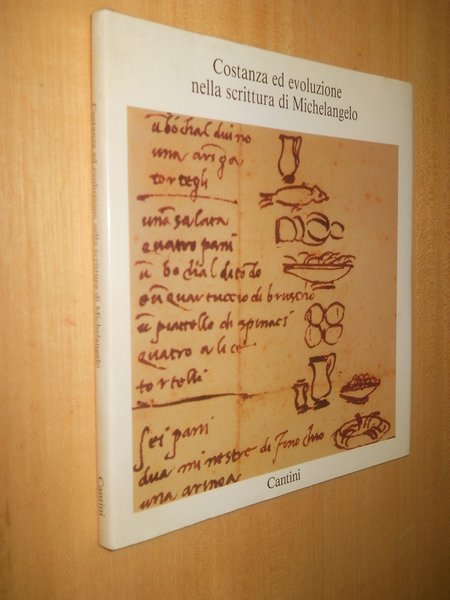 Costanza ed evoluzione
nella scrittura di Michelangelo
u͞ bochal duino
una aringa
tortegli
una salata
quatro pani
u͞ bochal di tōdo
e u͞ quartuccio di bruscho
u͞ piattello di spinaci
quatro alice
tortelli
sei pani
dua minestre di finochio
una aringa
Cantini
Costanza ed evoluzione nella scrittura di Michelangelo
Cantini